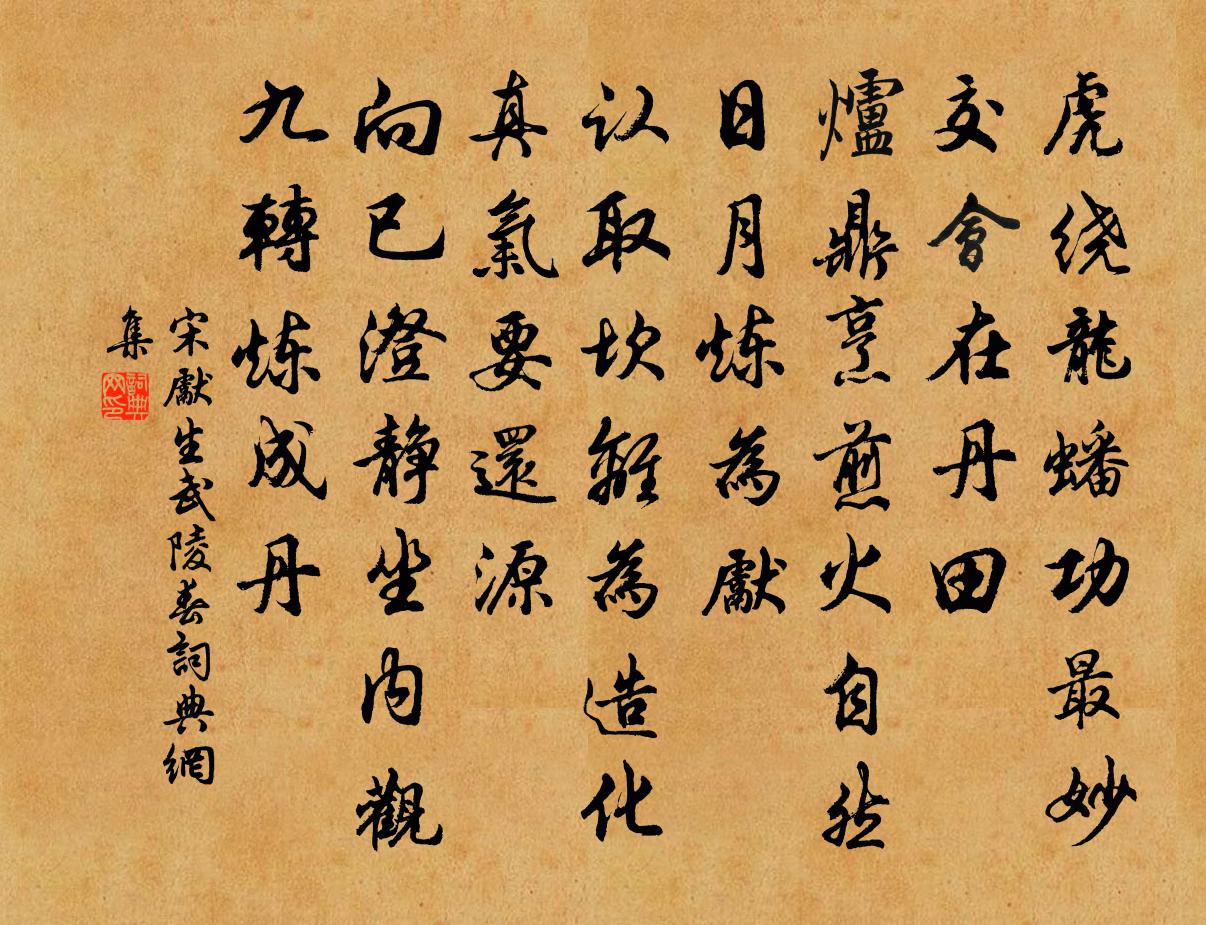 虎绕龍蟠功最妙
交會在丹田
爐鼎烹煎火自然
日月炼為獻
认取坎離為造化
真氣要還源
向已澄静坐内觀
九轉炼成丹
宋獻生武陵春詞典網
集
詞典
网印